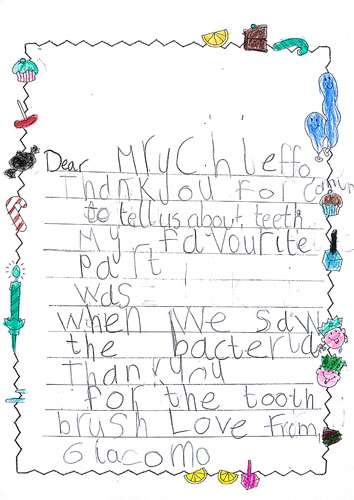 Dear Mrychieffo
Thankyou For Comin
to tell us about teeth
My Favourite
part
was
when We saw
the bacteria
Thankyou
for the tooth
brush Love From,
Giacomo